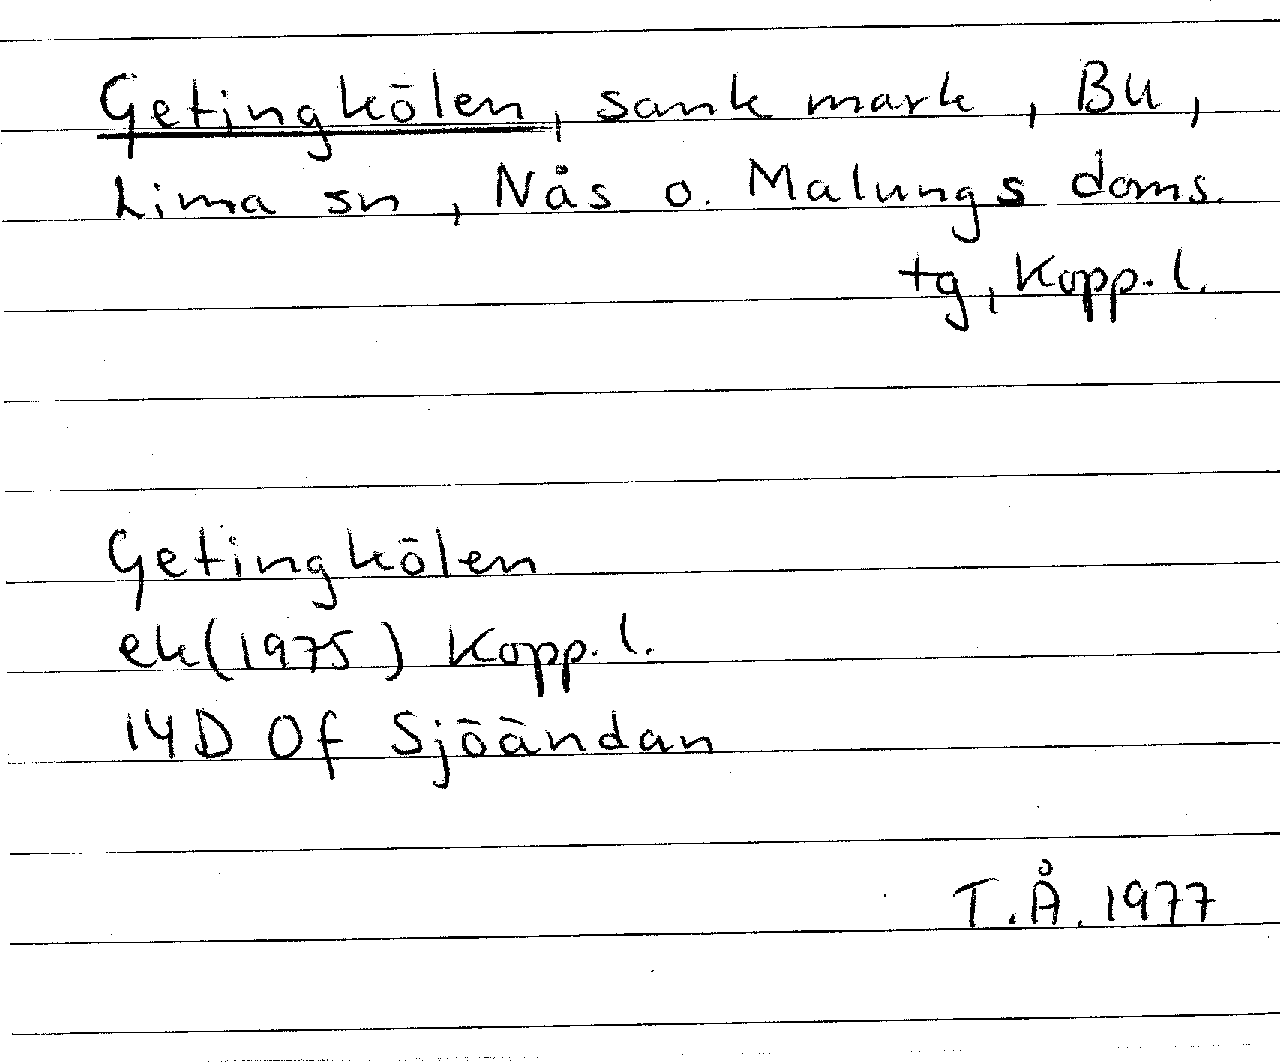 Getingkölen, sank mark, BU,
Lima sn, Nås o. Malungs doms.
tg, Kopp. l.
Getingkölen
ek (1975) Kopp. l.
14D 0f Sjöändan
T.Å. 1977